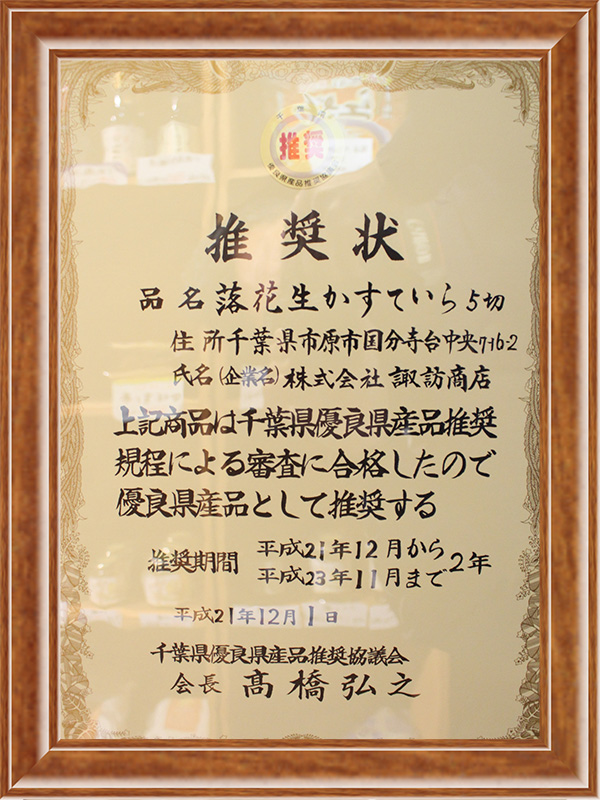 推奨
優良県産品推奨協議会
推奨状
品名 落花生かすていら 5切
住所 千葉県市原市国分寺台中央7-16-2
氏名(企業名) 株式会社 諏訪商店
上記商品は千葉県優良県産品推奨
規程による審査に合格したので
優良県産品として推奨する
推奨期間 平成21年12月から 2年
平成23年11月まで
平成21年12月1日
千葉県優良県産品推奨協議会
会長 髙橋弘之